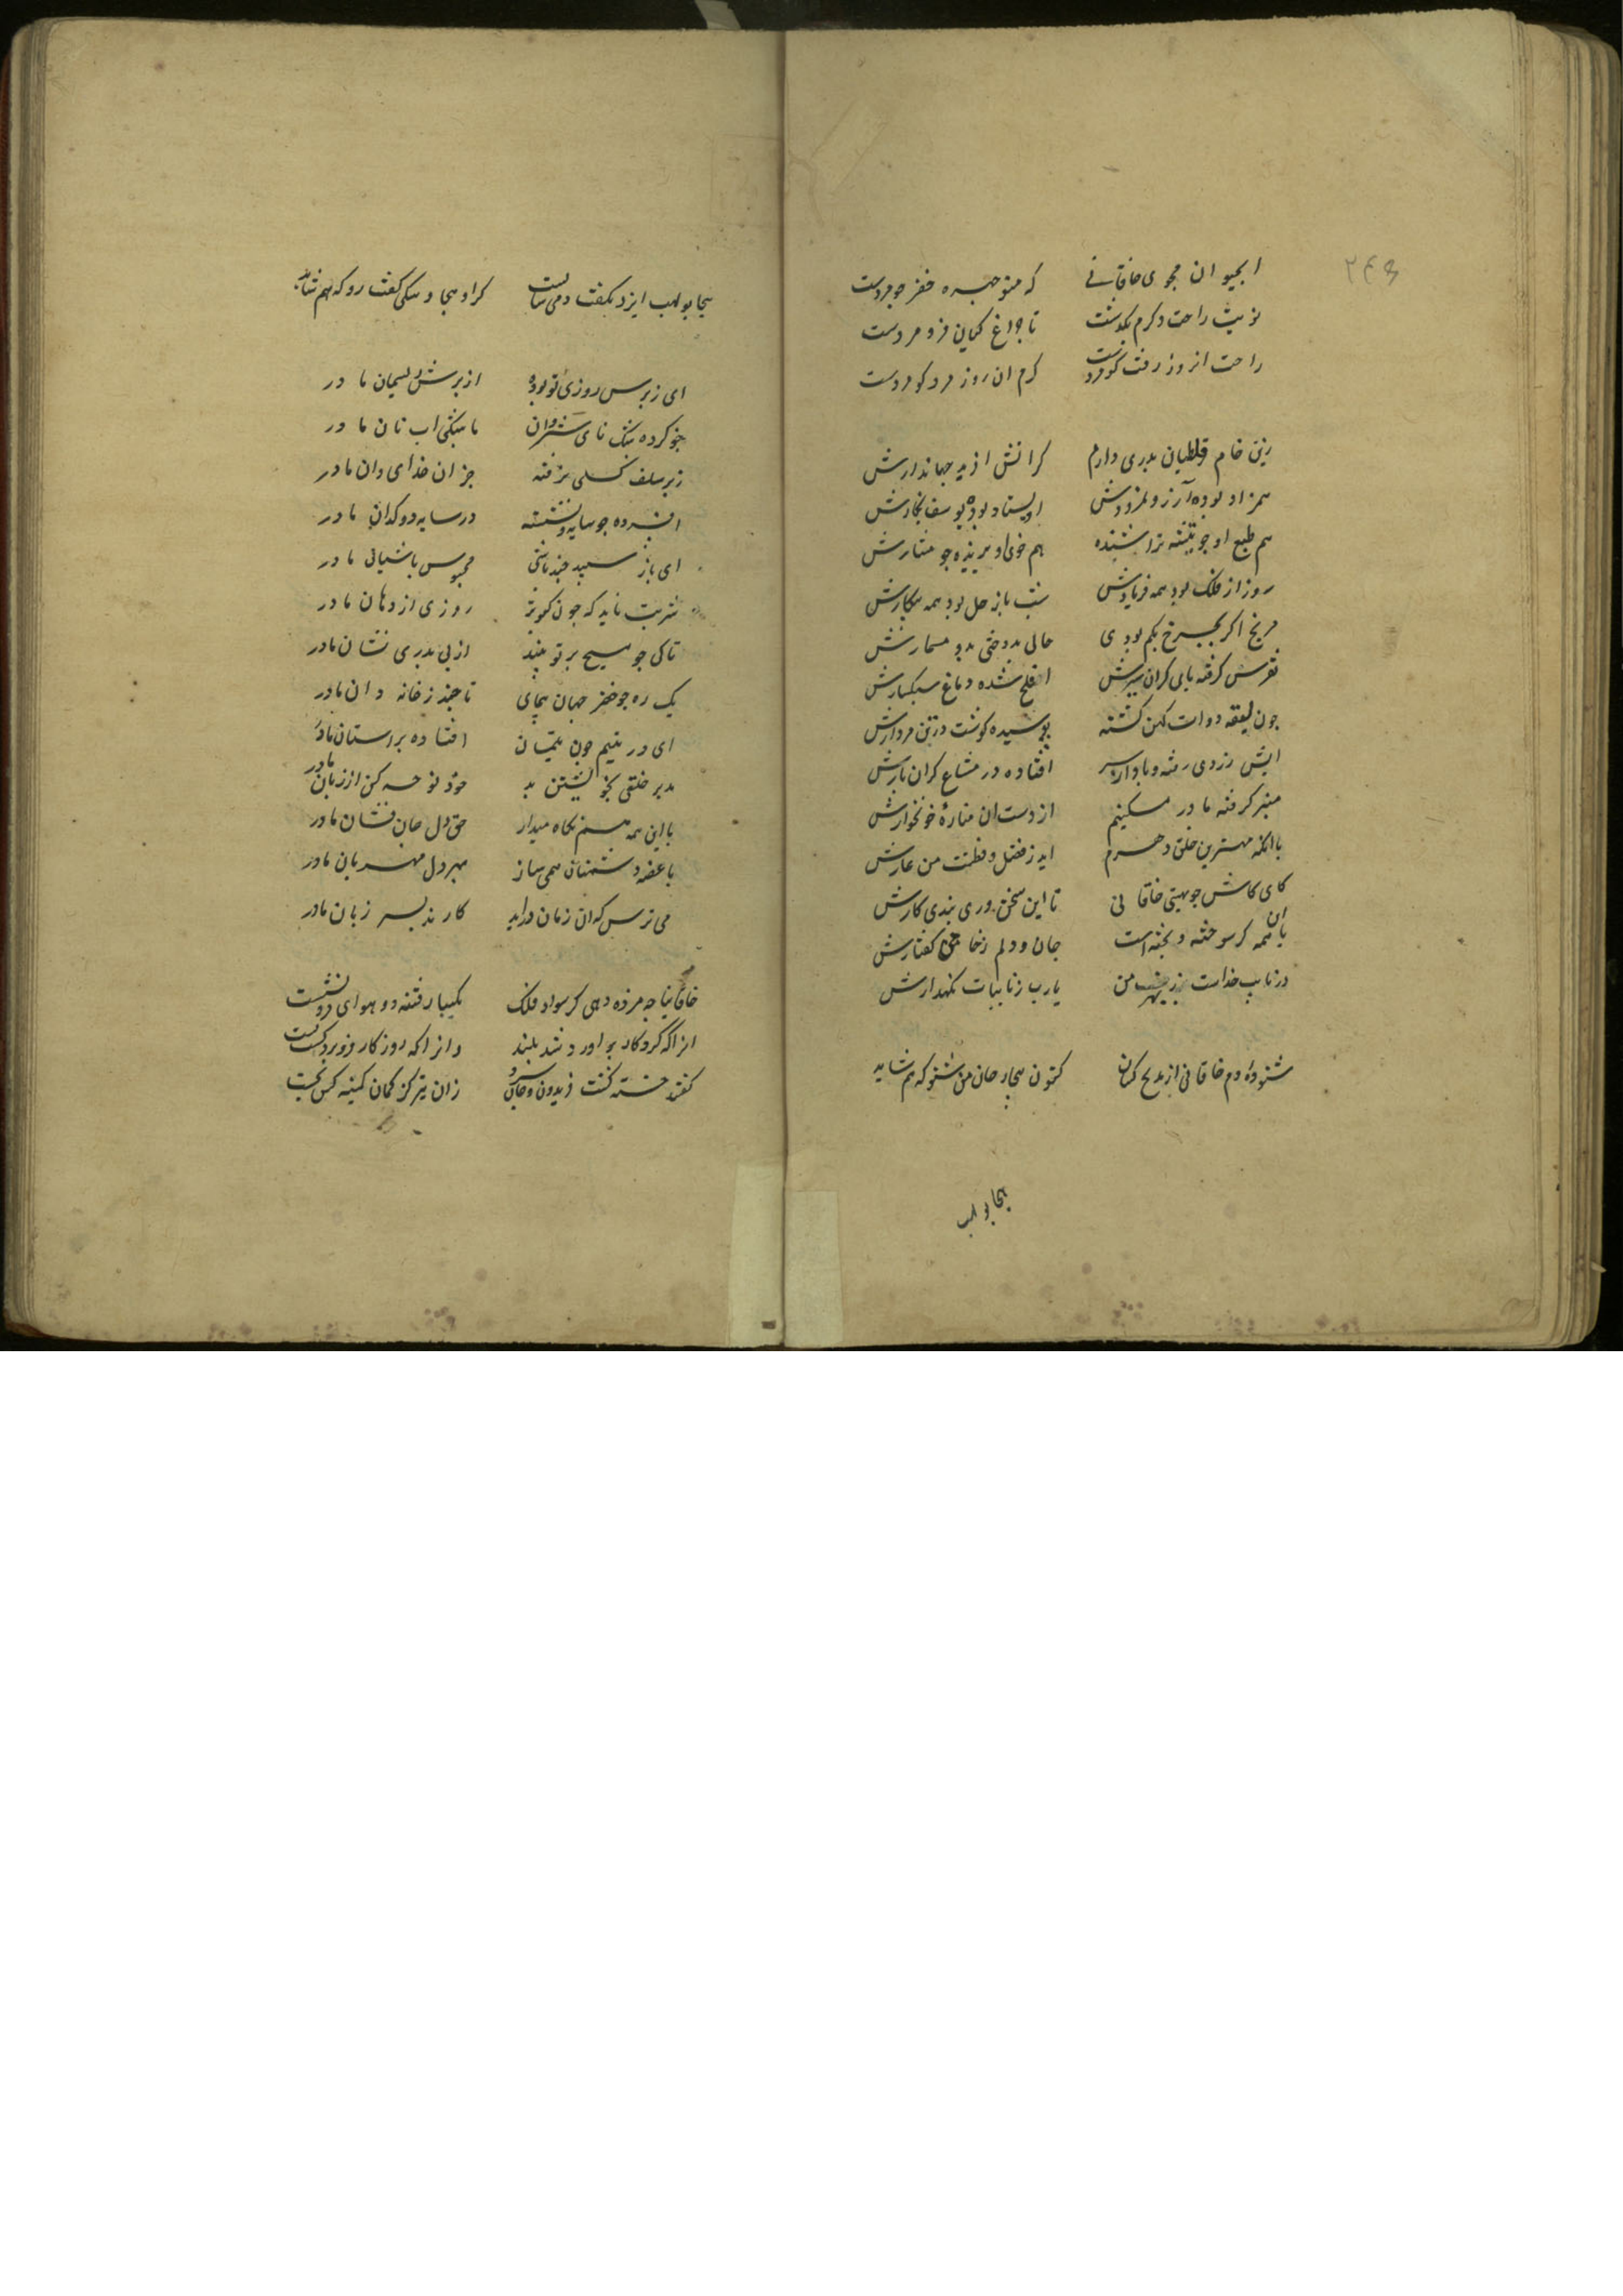 ۲۴۵
ابحیوان مجوی خاقانی که منوچهره خضر جو مردست
نوبت راحت و کرم بگذشت تا چراغ کیان فرو مردست
راحت انروز رفت کو مردست کرم ان روز مرد کو مردست
زین خام قلطبان بدری دارم کز انش افرید جهاندارش
همزاد بوده آزر نمرودش استاد بوده یوسف نجارش
هم طبع او جو تیشه تراشنده هم خوی او برنده جو منشارش
روز از فلک بود همه فریادش شب با زحل بود همه پیکارش
مریخ اکر بجرخ یکم بودی حالی بدوختی بدو مسمارش
نقرس کرفته پای کران سیرش اصلع شده دماغ سبکسارش
جون لیقه دوات کهن کشته پوسیده کوشت در تن مردارش
ابش ز روی رفته و باد از سر افتاده در متاع کران بارش
منبر کرفته مادر مسکینم از دست ان مناره خونخوارش
با انکه بهترین خلف دهرم اید ز فضل و فطنت من عارش
کای کاش جولهستی خاقانی تا این سخن وری نبدی کارش
با این همه که سوخته و بخته است جان و دلم ز خامی کفتارش
در نایب خداست من یارب ز نایبات نکهدارش
شنوده ام دم خاقانی از مدیح کسان کنون هجا جان من شنو که هم شاید
هجا بو لهب
هجا بو لهب ایزد بکفت و می شایست کر او هجا و سکی کفت رو که هم شاید
ای ریزه روزی تو بوده از ریزش ریسمان مادر
خو کرده بتنک نای شروان با تنکی اب و نان مادر
زیر سلف کسی نرفته جز ان خدای و ان مادر
افسرده جو سایه و نشسته در سایه دوکدان مادر
ای باز سپید جند باشی محبوس باشیان مادر
شرمت ناید که جون کبوتر روزی از دهان مادر
تا کی جو مسیح بر تو بینند از بی بدری نشان مادر
یک ره جو خضر جهان بپیمای تا جند ز خانه و ان مادر
ای در یتیم جون یتیمان افتاده بر استان مادر
مدبر خلفی بخویشتن بر خود نوحه کن از زبان مادر
با این همه هم نکاه میدار حق دل جان فشان مادر
با غصه دشمنان همی ساز بهر دل مهربان مادر
می ترس که ان زمان دراید کارند بسر زبان مادر
خاقانیا جه مژده دهی کز سواد ملک یکباره فتنه دو هوایی فرو نشست
انرا که کردکار براورد شد بلند وانرا که روزکار فرو برد کشت پست
کفتند خسته کشت فریدون و جان سپرد زان تیر کز کمان کمینه کس بجست